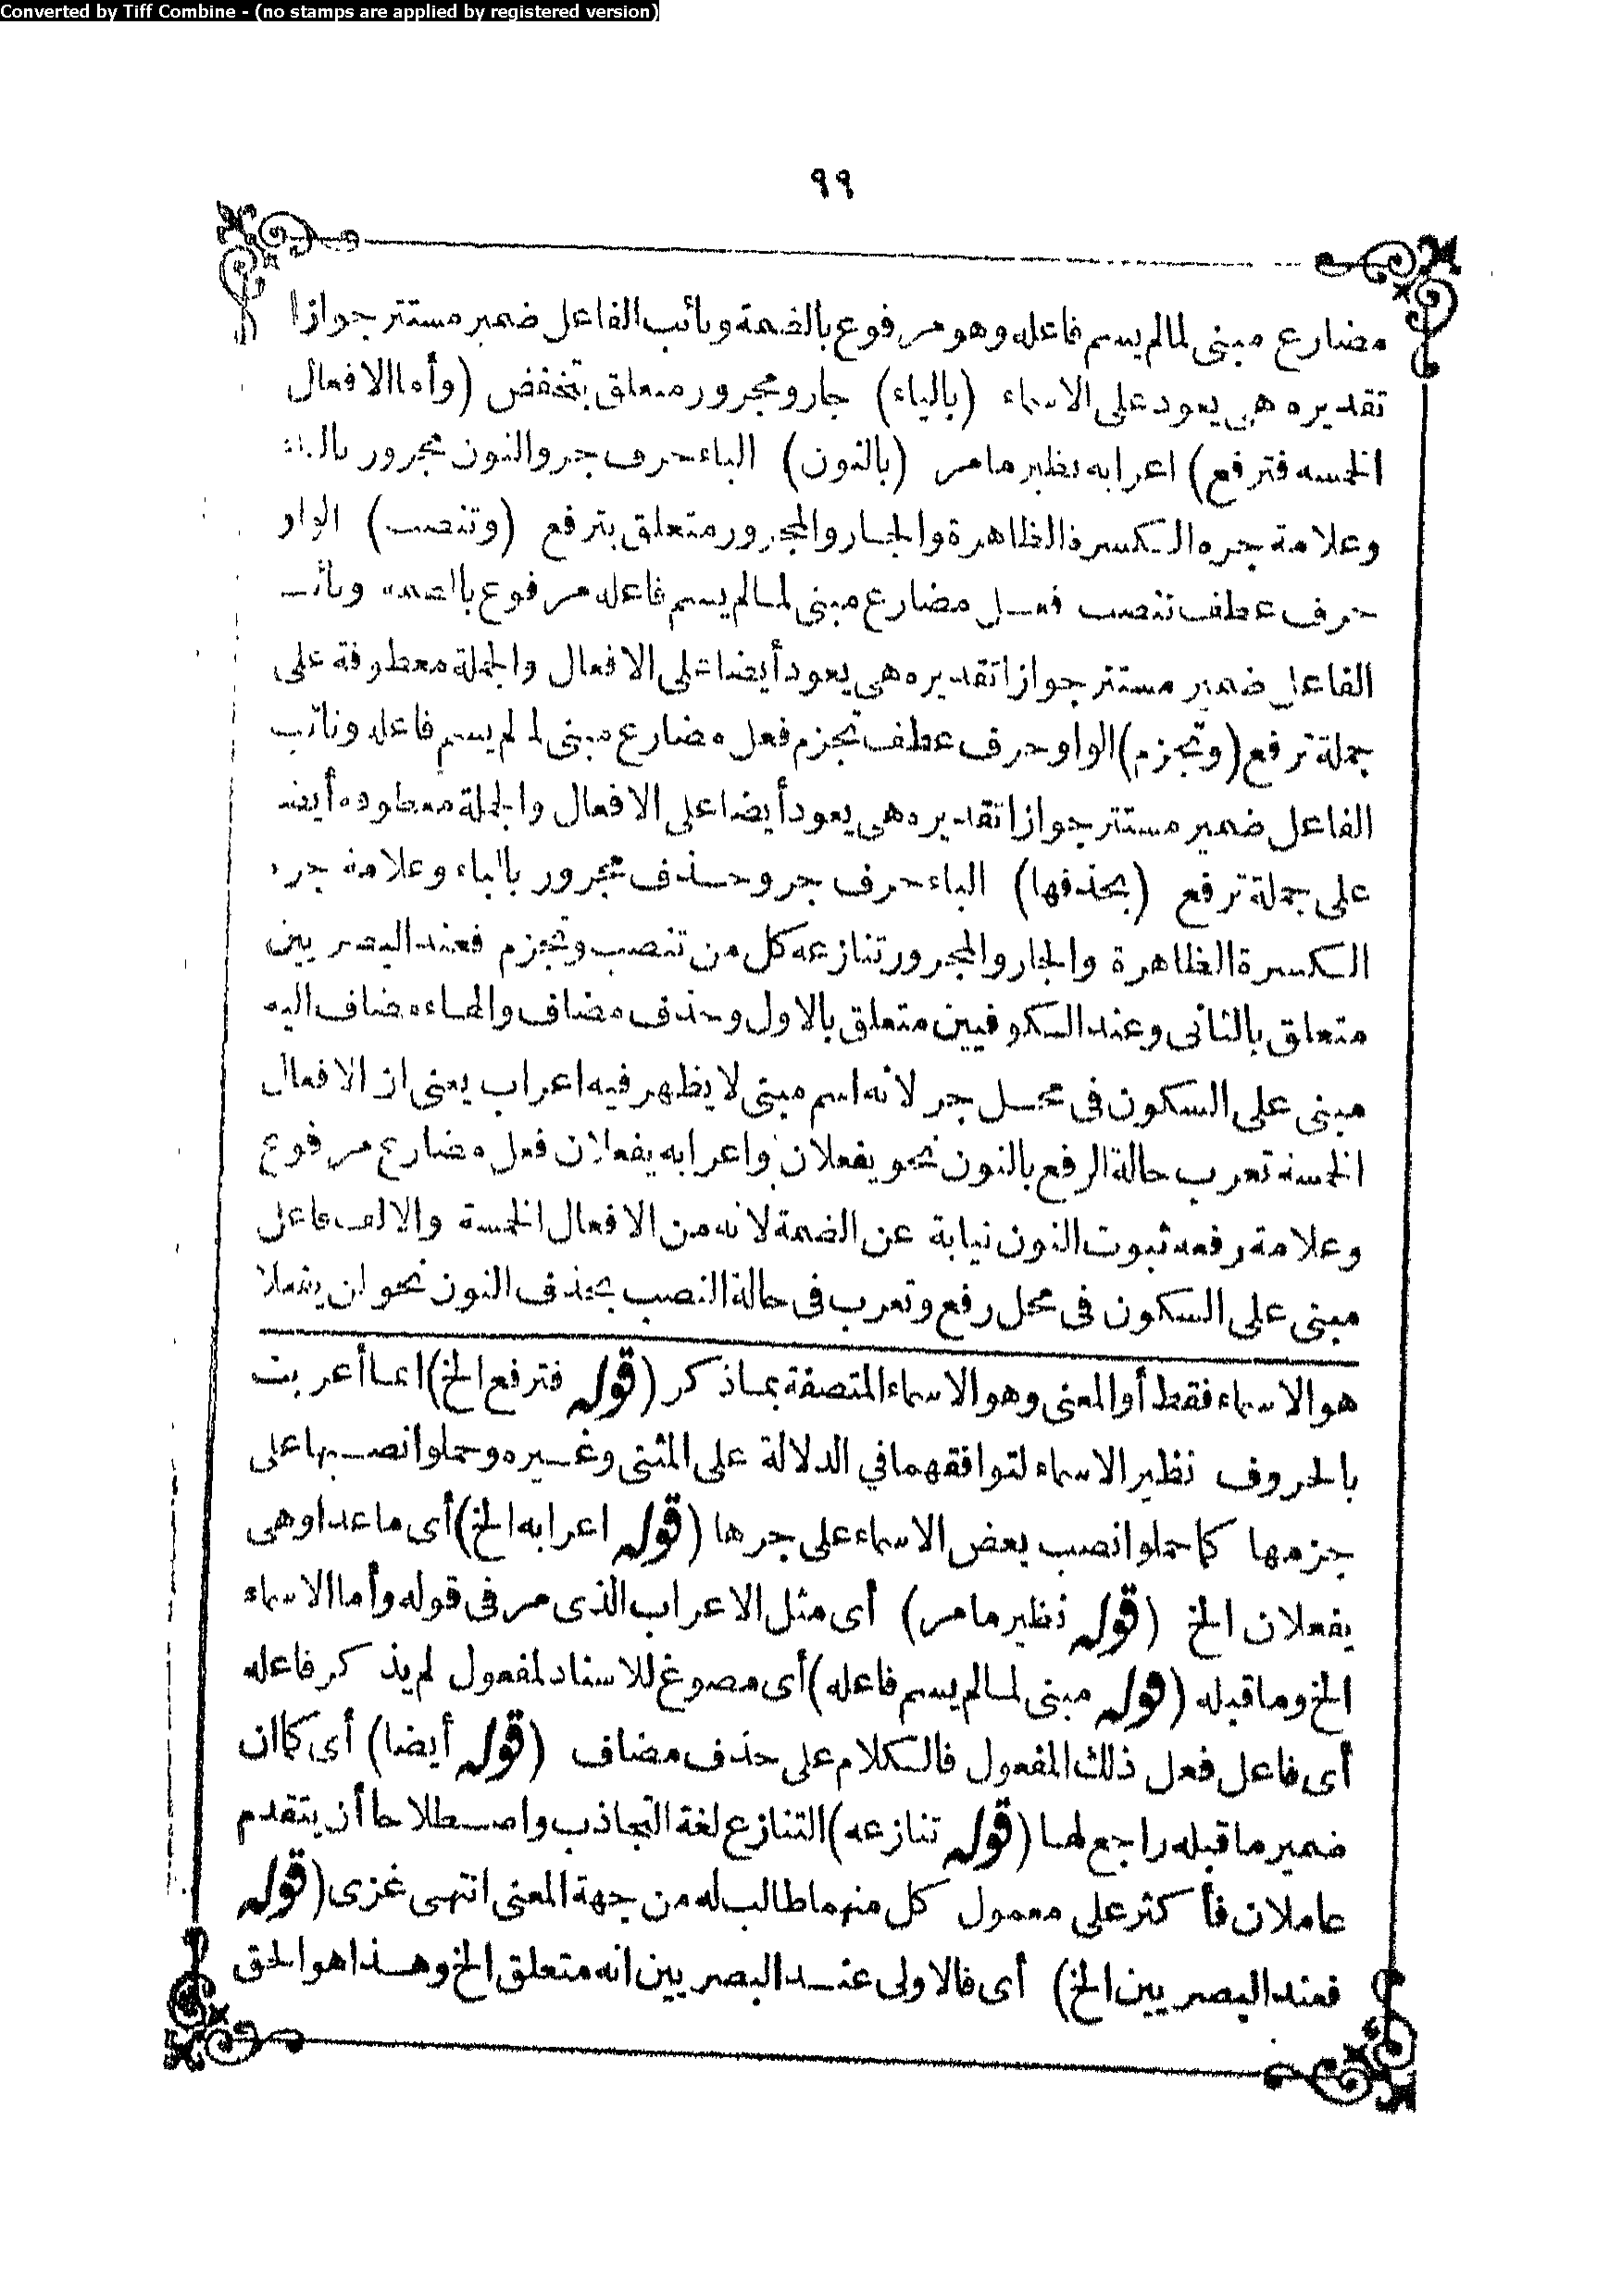 Converted by Tiff Combine - (no stamps are applied by registered version)
٩٩
مضارع مبنى لمالم يسم فاعله وهو مرفوع بالضمة ونائب الفاعل ضمير مستتر جوازا
تقديره هى يعود على الاسماء (بالياء) جار ومجرور متعلق بتخفض (وأما الافعال
الخمسة فترفع) اعرابه نظير مامر (بالنون) الباء حرف جر والنون مجرور بالباء
وعلامة جره الكسرة الظاهرة والجار والمجرور متعلق بترفع (وتنصب) الواو
حرف عطف تنصب فعل مضارع مبنى لمالم يسم فاعله مرفوع بالضمة ونائب
الفاعل ضمير مستتر جوازا تقديره هى يعود أيضا على الافعال والجملة معطوفة على
جملة ترفع (وتجزم) الواو حرف عطف تجزم فعل مضارع مبنى لما لم يسم فاعله ونائب
الفاعل ضمير مستتر جوازا تقديره هى يعود أيضا على الافعال والجملة معطوفة أيضا
على جملة ترفع (بحذفها) الباء حرف جر وحذف مجرور بالباء وعلامة جره
الكسرة الظاهرة والجار والمجرور تنازعه كل من تنصب وتجزم فعند البصريين
متعلق بالثانى وعند الكوفيين متعلق بالاول وحذف مضاف والهاء مضاف اليه
مبنى على السكون فى محل جر لانه اسم مبنى لا يظهر فيه اعراب يعنى ان الافعال
الخمسة تعرب حالة الرفع بالنون نحو يفعلان واعرابه يفعلان فعل مضارع مرفوع
وعلامة رفعه ثبوت النون نيابة عن الضمة لانه من الافعال الخمسة والالف فاعل
مبنى على السكون فى محل رفع وتعرب فى حالة النصب بحذف النون نحو لن يفعلا
هو الاسماء فقط أو المعنى وهو الاسماء المتصفة بماذكر (قوله فترفع الخ) انما أعربت
بالحروف نظير الاسماء لتوافقهما في الدلالة على المثنى وغيره وحملوا نصبها على
جزمها كما حملوا نصب بعض الاسماء على جرها (قوله اعرابه الخ) أى ماعدا وهى
يفعلان الخ (قوله نظير مامر) أى مثل الاعراب الذى مر فى قوله وأما الاسماء
الخ وماقبله (قوله مبنى لمالم يسم فاعله) أى مصوغ للاسناد لمفعول لم يذكر فاعله
أى فاعل فعل ذلك المفعول فالكلام على حذف مضاف (قوله أيضا) أى كما ان
ضمير ماقبله راجع لها (قوله تنازعه) التنازع لغة التجاذب واصطلاحا أن يتقدم
عاملان فأكثر على معمول كل منهما طالب له من جهة المعنى انتهى غزى (قوله
فعند البصريين الخ) أى فالاولى عند البصريين انه متعلق الخ وهذا هو الحق